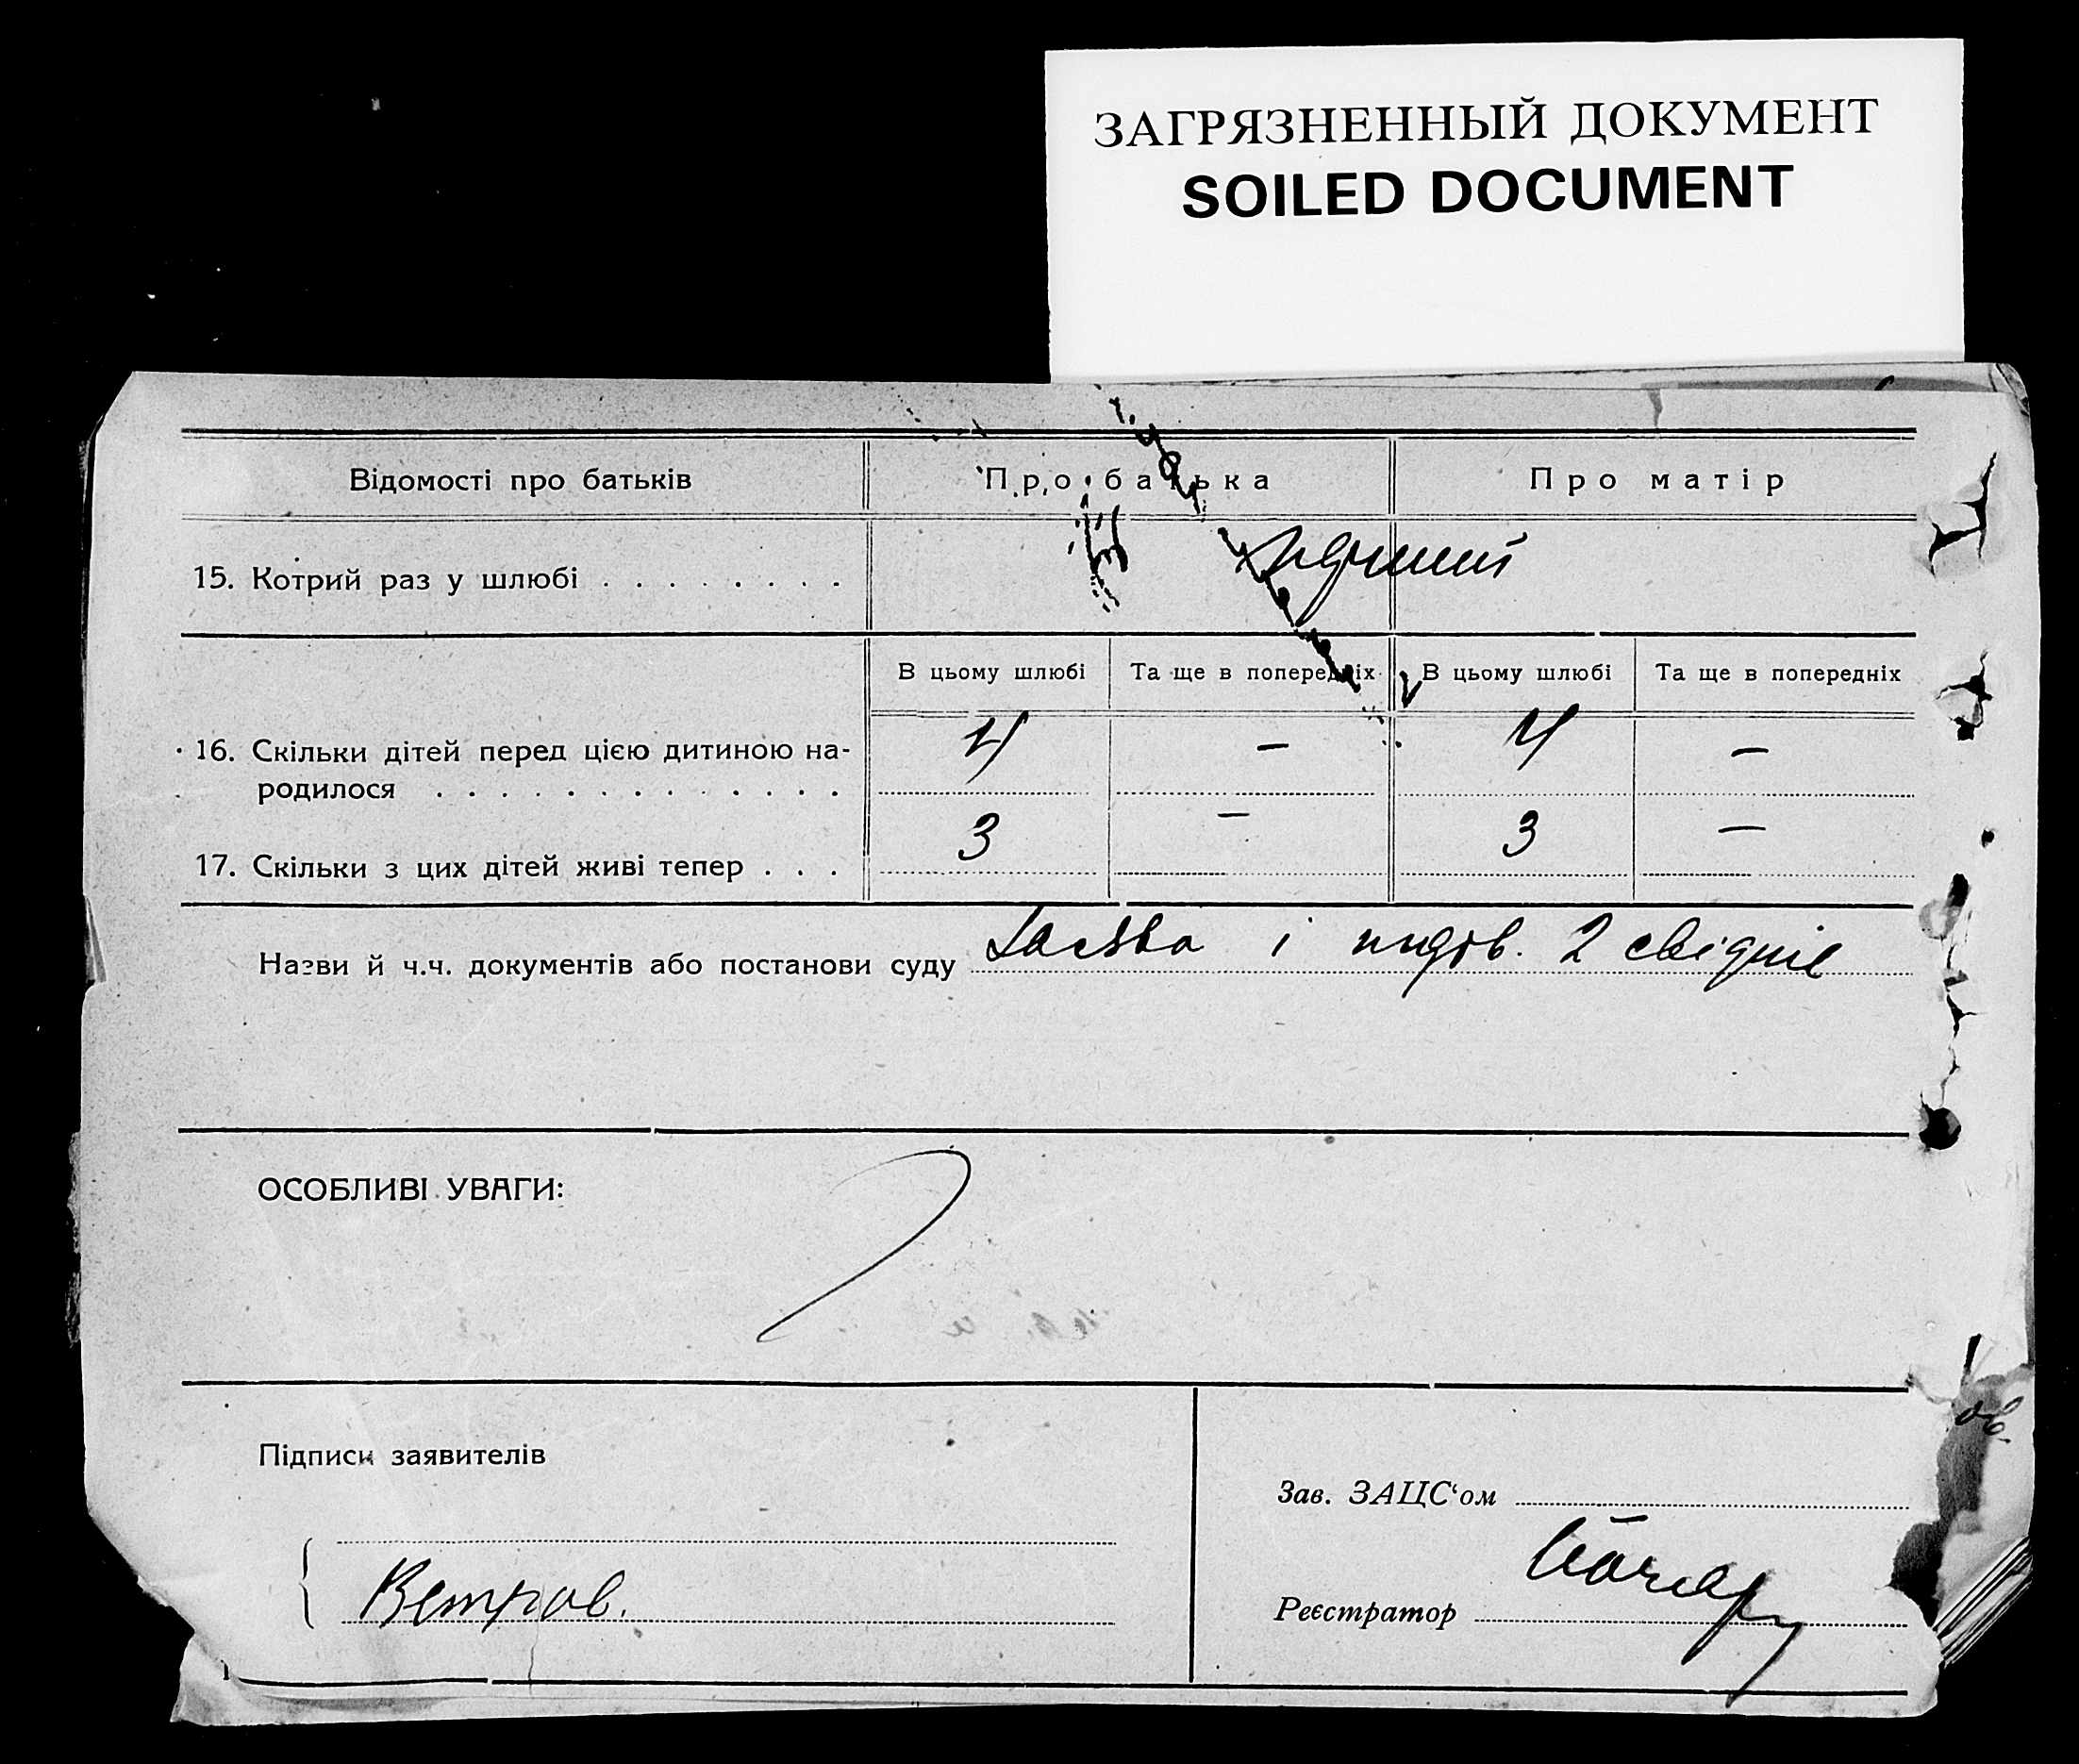 ЗАГРЯЗНЕННЫЙ ДОКУМЕНТ
SOILED DOCUMENT
Відомості про батьків Про батька Про матір
15. Котрий раз у шлюбі . . . . . . . . перший
В цьому шлюбі Та ще в попередніх В цьому шлюбі Та ще в попередніх
16. Скільки дітей перед цією дитиною на-
родилося . . . . . . . . . . . . . 4 — 4 —
17. Скільки з цих дітей живі тепер . . . 3 — 3 —
Назви й ч.ч. документів або постанови суду і 2 свідків
ОСОБЛИВІ УВАГИ:
Підписи заявителів
Зав. ЗАЦС'ом
Ветров.
Реєстратор